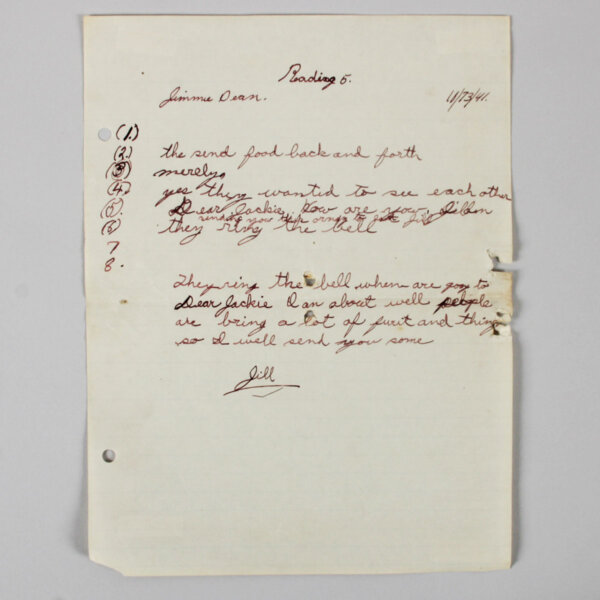 Reading 5.
Jimmie Dean. 11/13/41.
(1.)
(2.) the send food back and forth
(3) merely.
(4.) yes they wanted to see each other
(5). Dear Jackie, How are you,
would you like
(6) they ring the bell
7
8.
They ring the bell when are gong to
Dear Jackie I an about well people
are bring a lot of furit and things
so I well send you some
Jill